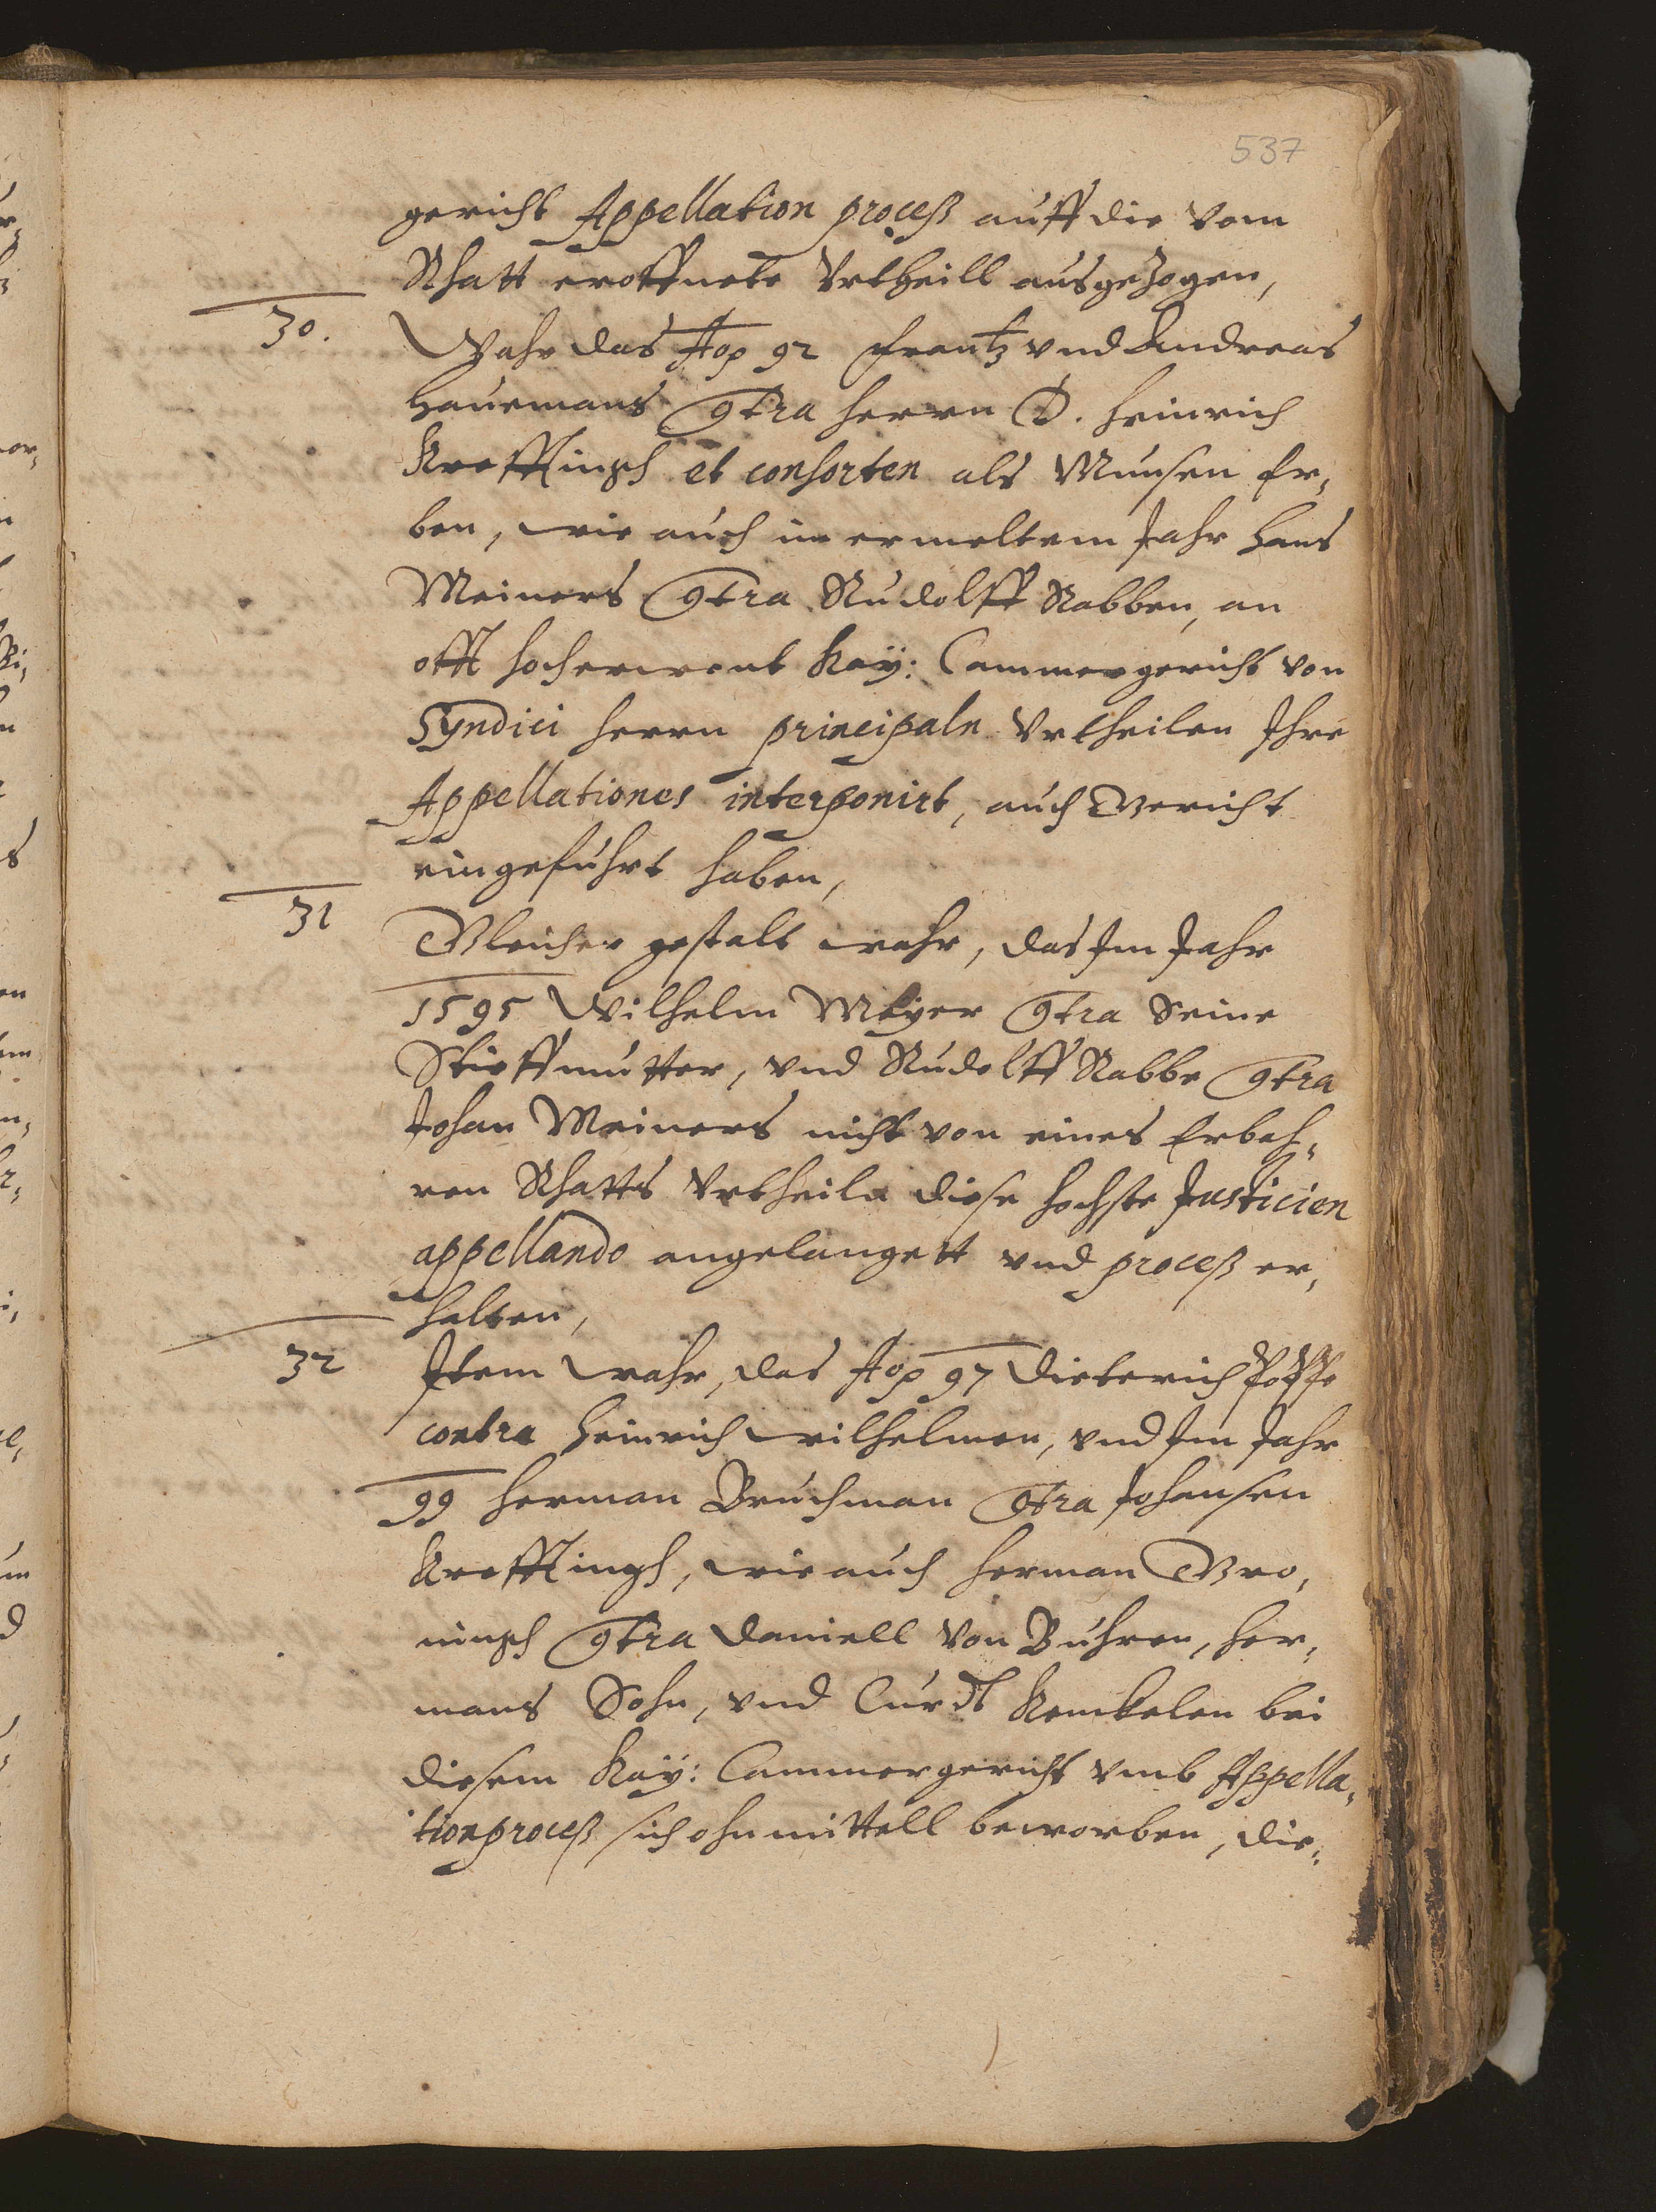 537
gericht Appellation proceß auff die vom
Rhatt eroffnete Vrtheill ausgezogen,
30.
Wahr das Aõ 92 Frantz vnd Andreas
Hauemans 9tra Herrn D. Heinrich
Krefftingh et consorten als Munsen Er,
ben, wie auch in ermeltem Jahr Hans
Meiners 9tra Rudolff Rabben, an
offt hocherwent Kaÿ: Cammergericht von
Syndici Herrn principaln Vrtheilen Ihre
Appellationes interponirt, auch Gericht
eingefuhrt haben,
31
Gleicher gestalt wahr, das Im Jahr
1595 Wilhelm Meÿer 9tra Seine
Stieffmutter, vnd Rudolff Rabbe 9tra
Johan Meiners nicht von eines Erbah,
ren Rhatts Vrtheiln diese hochste Justicien
appellando angelangett vnd proceß er,
halten,
32
Item wahr, das Aõ 97 Dieterich
contra Heinrich Wilhelmen, vnd Im Jahr
99 Herman Bruchman 9tra Johansen
Krefftingh, wie auch Herman Gro,
ningh 9tra Daniell von Buhren, Her,
mans Sohn, vnd Curdt Kenckelen bei
diesem Kaÿ: Cammergericht vmb Appella,
tionproceß sich ohnmittell beworben, die,